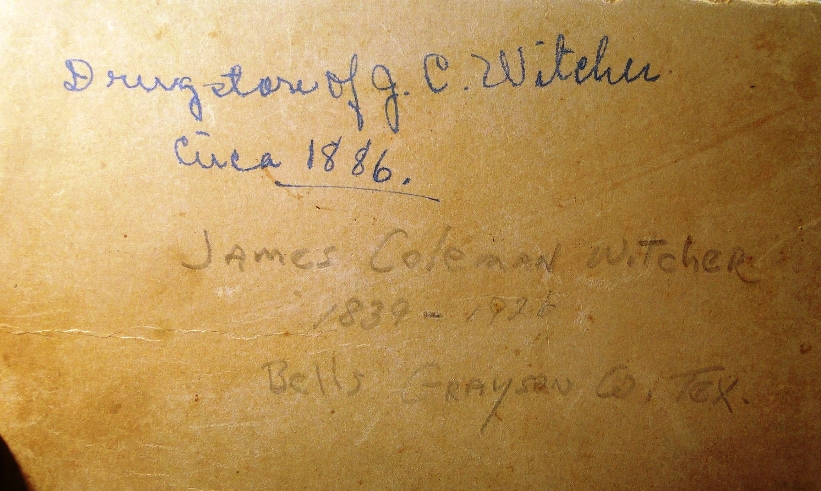 Drugstore of J. C. Witcher
Circa 1886.
James Coleman Witcher
1839 - 1926
Bells Grayson Co., Tex.